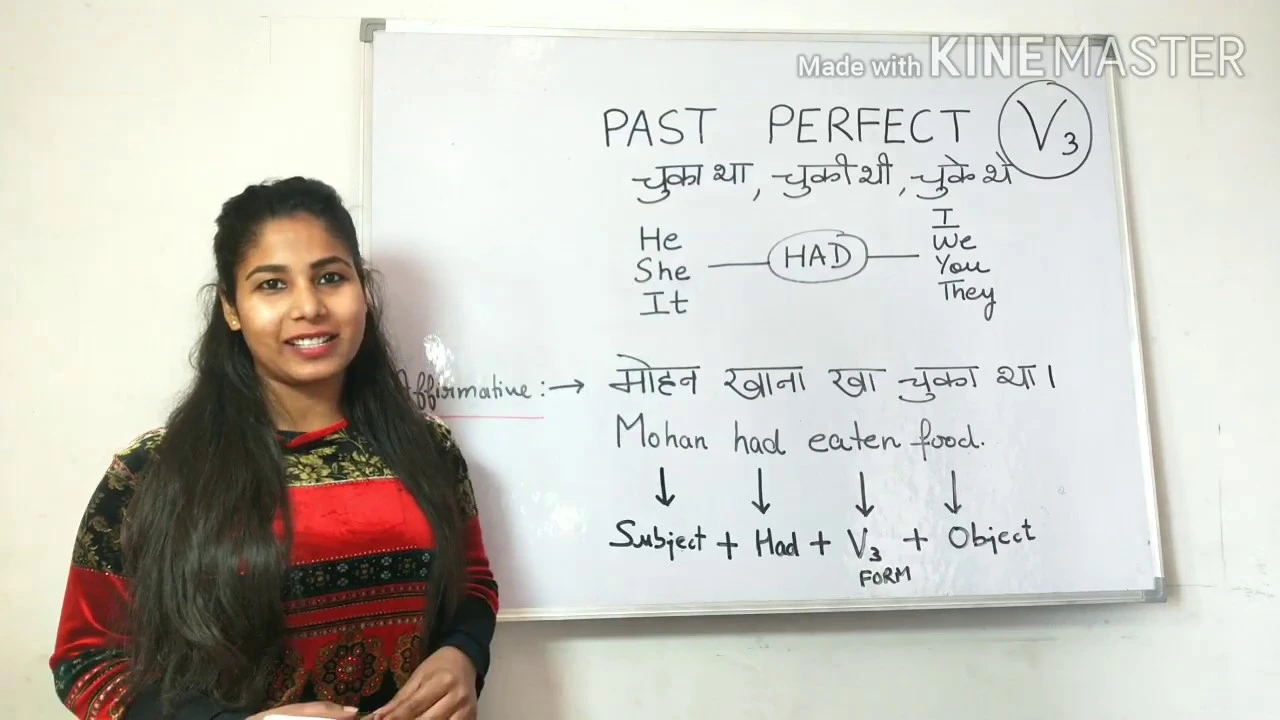 Made with KINEMASTER
PAST PERFECT V3
चुका था, चुकी थी, चुके थे
He
She
It
HAD
I
We
You
They
Affirmative :→ मोहन खाना खा चुका था।
Mohan had eaten food.
↓ ↓ ↓ ↓
Subject + Had + V3 + Object
FORM